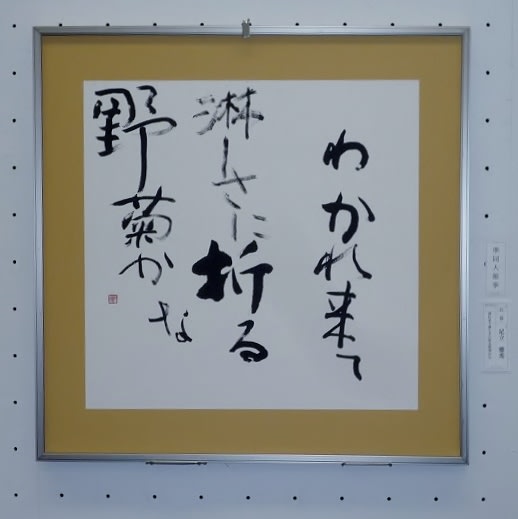 わかれ来て
淋しさに折る
野菊かな